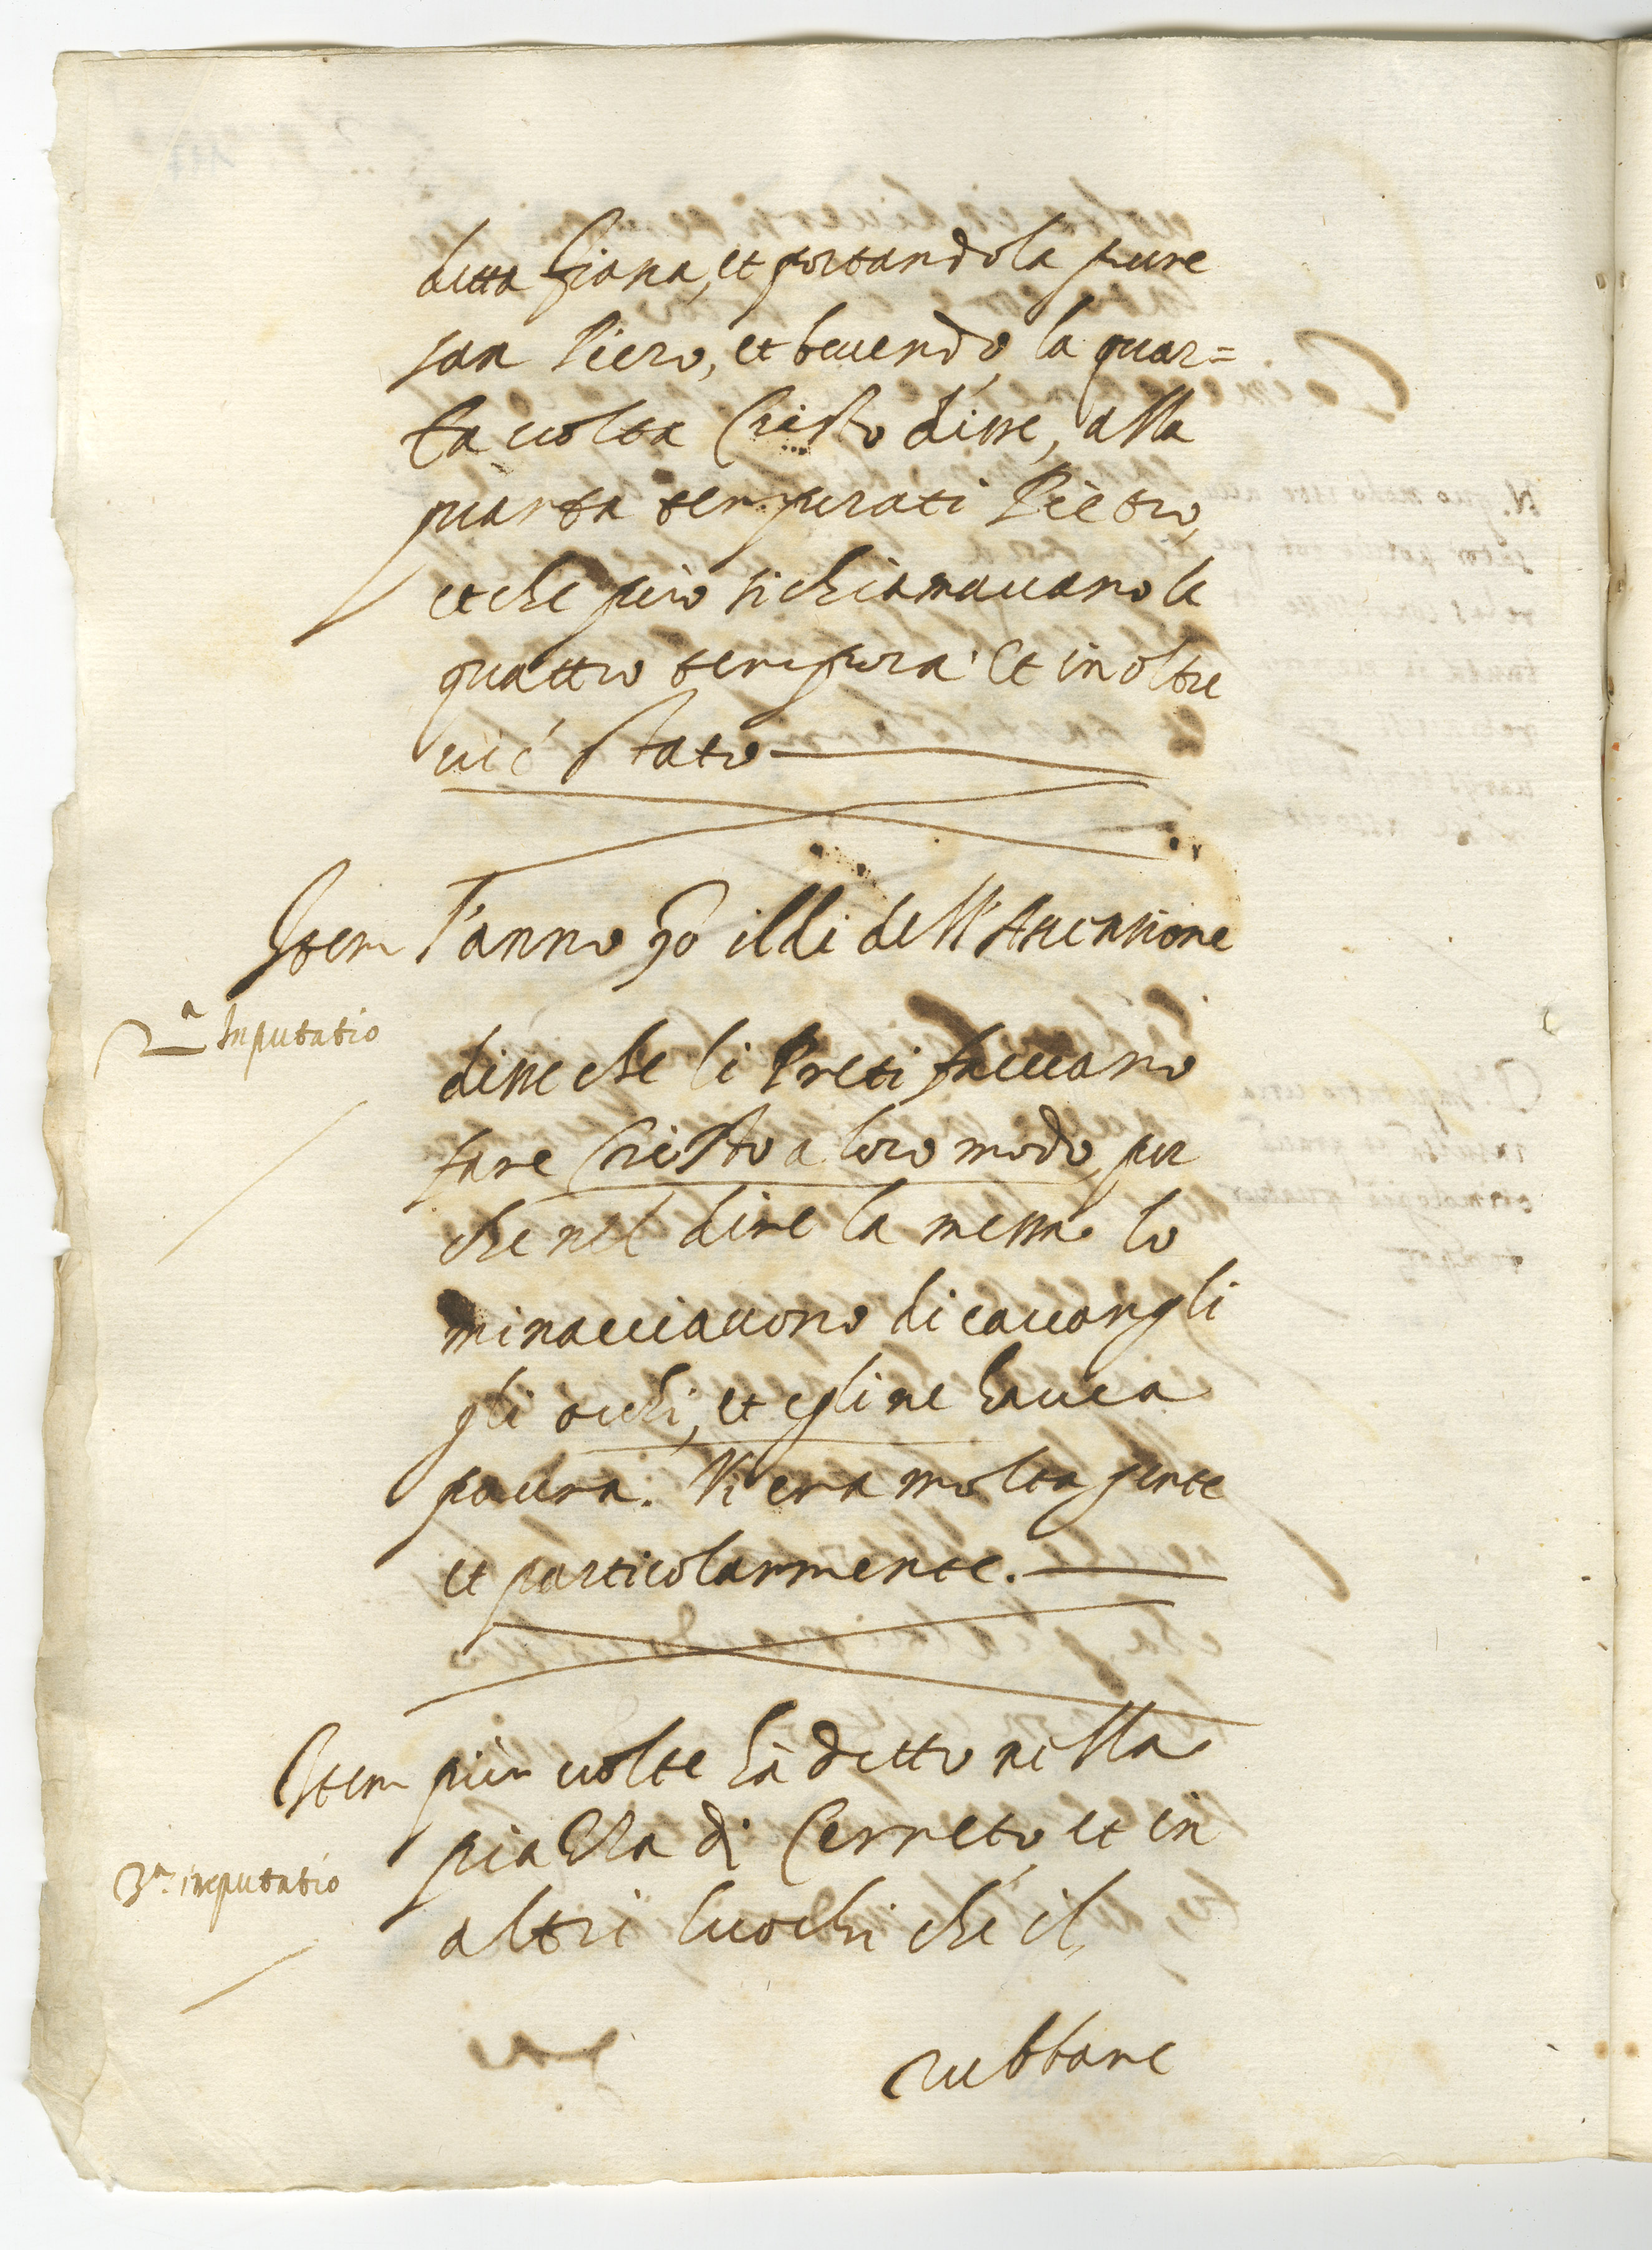 detta fiana, et portandola pure
san Piero, et beuendo, la quar=
ta uolta Christo disse, alla
quarta temperati Pietro,
et che però si chiamauano le
quattro tempora. Et inoltre
ui é stato
Item l'anno 90 il di dell'Ascensione
2.a Inputatio
disse che li Preti faceuano
fare Christo a loro modo, per
che nel dire la messa lo
minacciauono di cauargli
gli occhi, et egli ne haueа
paura. Vi era molta gente
et particolarmente.
Item più uolte hà detto nella
piazza di Cerreto et in
3.a inputatio
altri luochi che il
rubbare